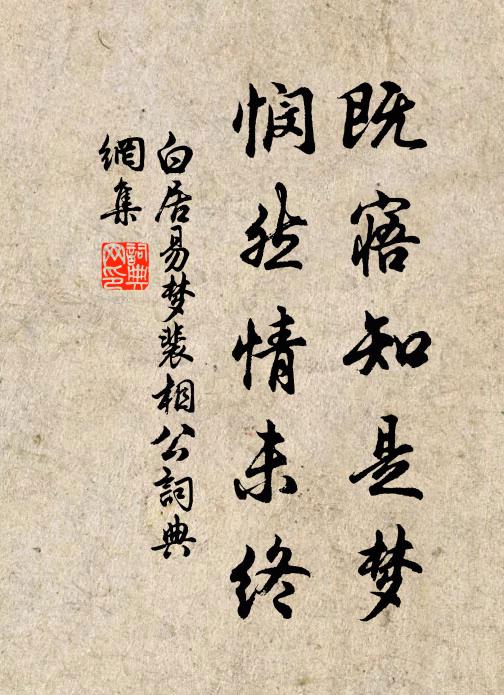 既寤知是梦
悯然情未终
白居易梦裴相公词典
網集
詞典网印